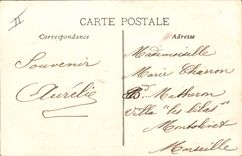 II
CARTE POSTALE
Correspondance
Adresse
Souvenir
Aurélie
Mademoiselle
Marie Charron
Bd Matheron
Villa "les lilas"
Montolivet
Marseille